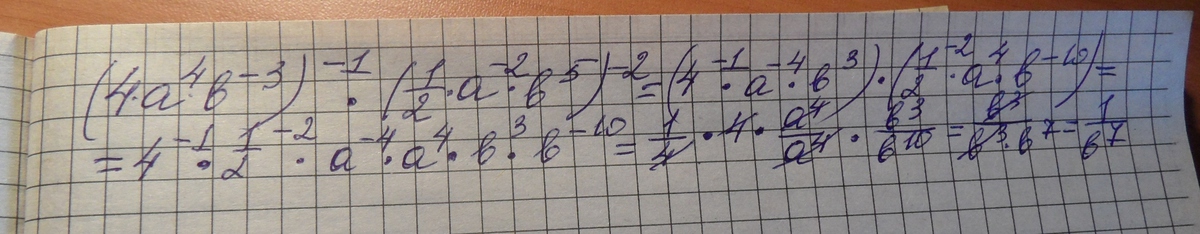 (4·a⁴·b⁻³)⁻¹ · (1/2·a⁻²·b⁵)⁻² = (4⁻¹·a⁻⁴·b³)·(1/2⁻²·a⁴·b⁻¹⁰) =
= 4⁻¹·1/2⁻²·a⁻⁴·a⁴·b³·b⁻¹⁰ = 1/4·4·a⁴/a⁴·b³/b¹⁰ = b³/b³·b⁷ = 1/b⁷